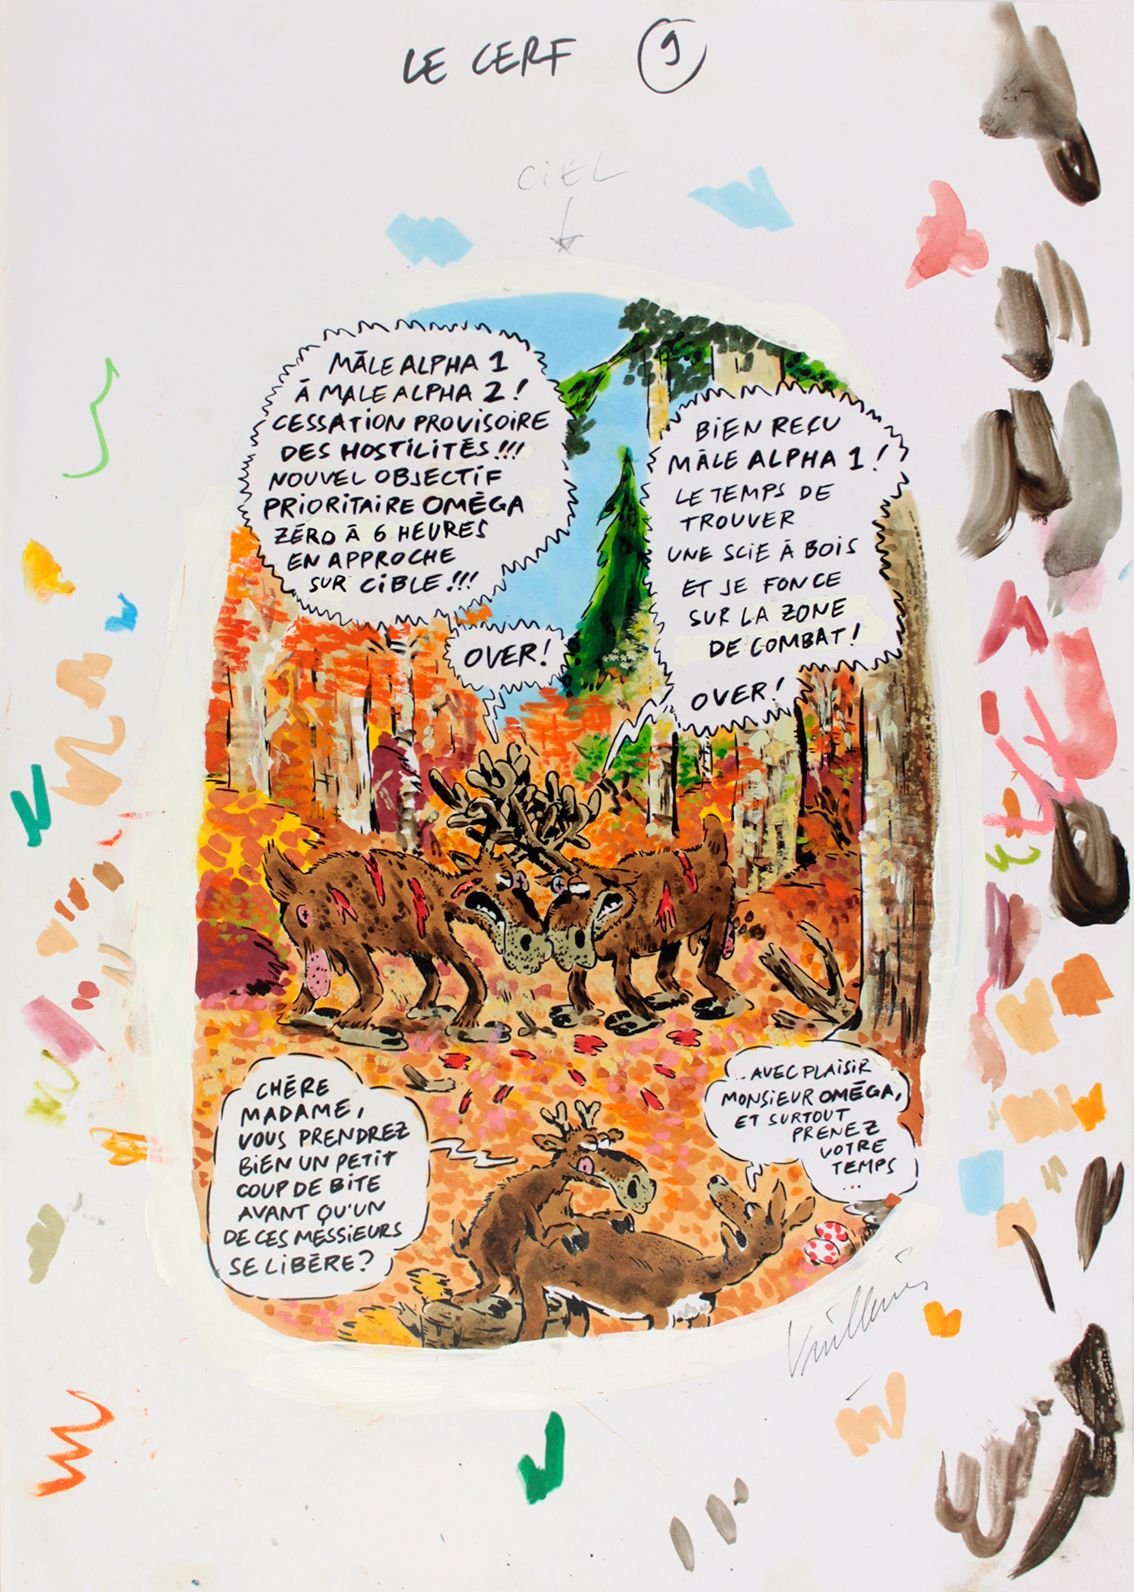 LE CERF 9
CIEL
MÂLE ALPHA 1
À MALE ALPHA 2 !
CESSATION PROVISOIRE
DES HOSTILITÉS !!!
NOUVEL OBJECTIF
PRIORITAIRE OMÉGA
ZÉRO À 6 HEURES
EN APPROCHE
SUR CIBLE !!!
OVER !
BIEN REÇU
MÂLE ALPHA 1 !
LE TEMPS DE
TROUVER
UNE SCIE À BOIS
ET JE FONCE
SUR LA ZONE
DE COMBAT !
OVER !
CHÈRE
MADAME,
VOUS PRENDREZ
BIEN UN PETIT
COUP DE BITE
AVANT QU'UN
DE CES MESSIEURS
SE LIBÈRE ?
.. AVEC PLAISIR
MONSIEUR OMÉGA,
ET SURTOUT
PRENEZ
VOTRE
TEMPS
...
Vuillemin